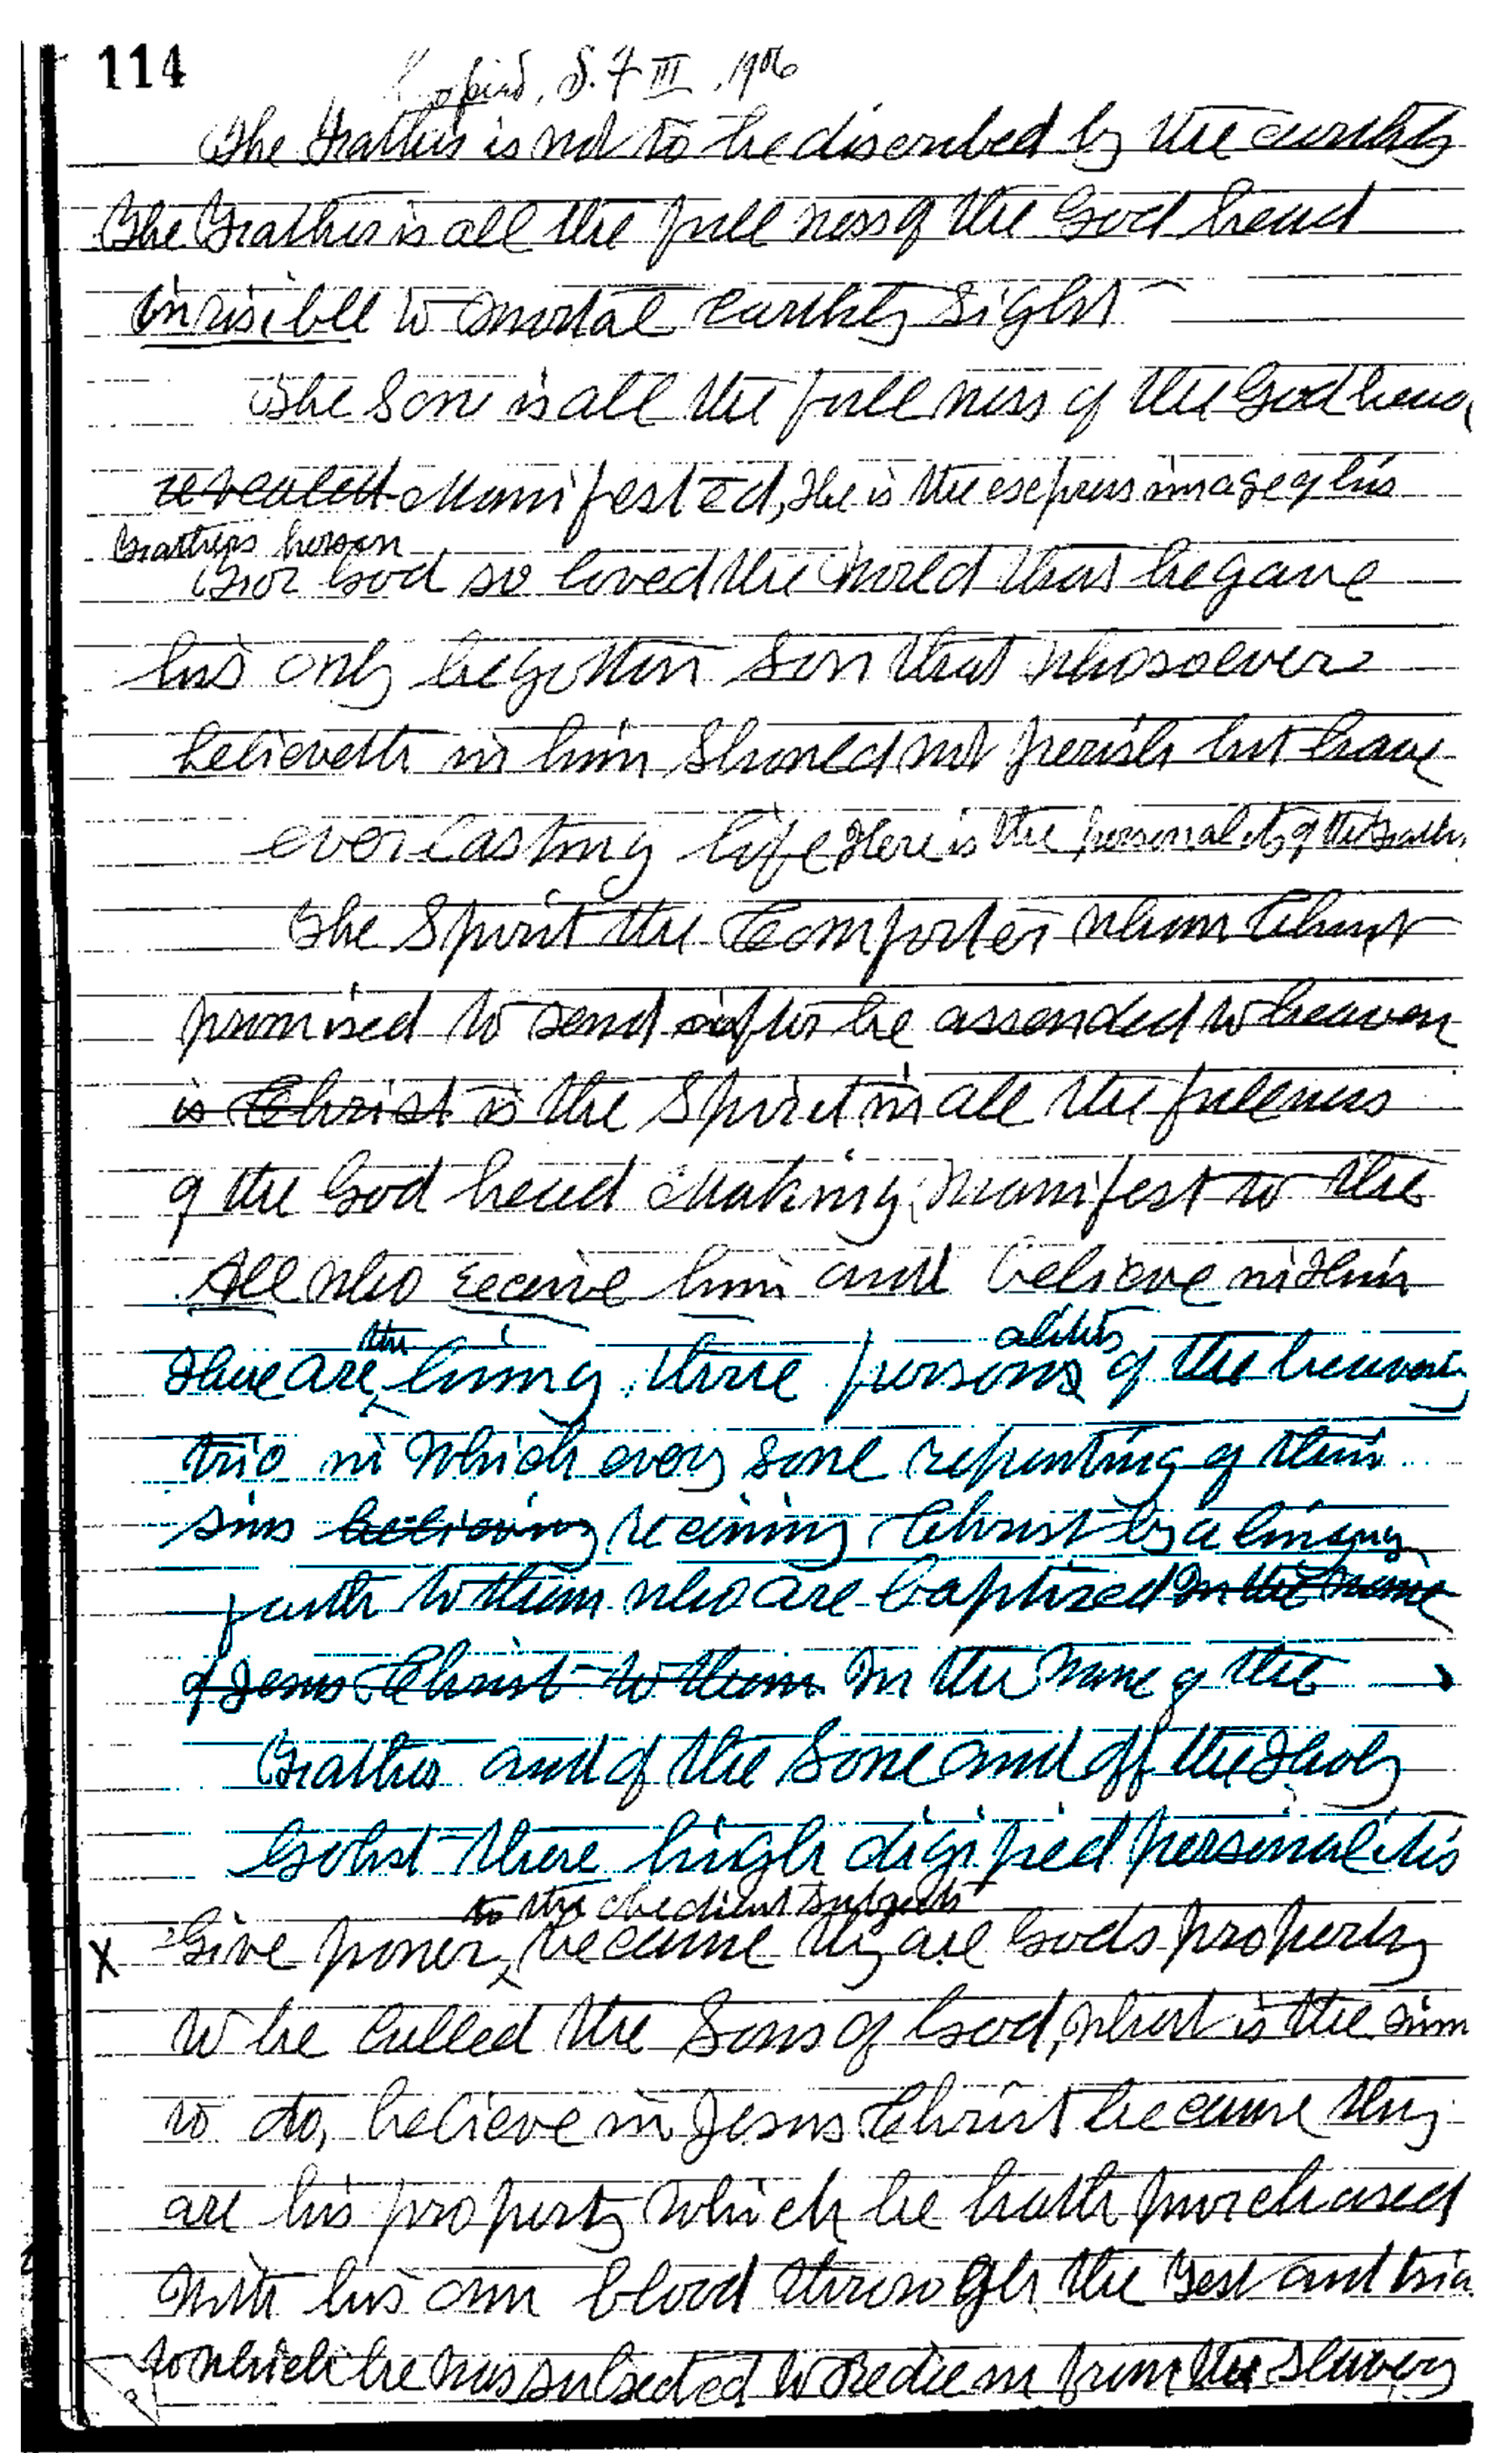 114
Copied, S. F III, 1906
The Father is not to be discribed by the earthly
The Father is all the full ness of the God head
invisible to mortal earthly sight
The Sone is all the full ness of the God head
revealed Manifested, He is the express image of his
Fathers person
For God so loved the World that he gave
his only begotten Son that whosoever
believeth in him should not perish but have
everlasting life Here is the personality of the Father
The Spirit the Comforter whom Christ
promised to send after he assended to heaven
is Christ is the Spirit in all the fullness
of the God head making manifest to the
All who receive him and believe in Him
the alities
There are living three persons of the heavenly
trio in which every sone repenting of their
sins believing receiving Christ by a living
faith to them who are baptized in the name
of Jesus Christ to them In the name of the
Father and of the Sone and off the Holy
Gohst these high digified personalitis
to the obedient subjects
X Give power because they are Gods property
to be called the Sons of God, what is the sinn
to do, believe in Jesus Christ because they
are his property which he hath purchased
with his own blood through the test and tria
to which he was subected to redeem from the slavery